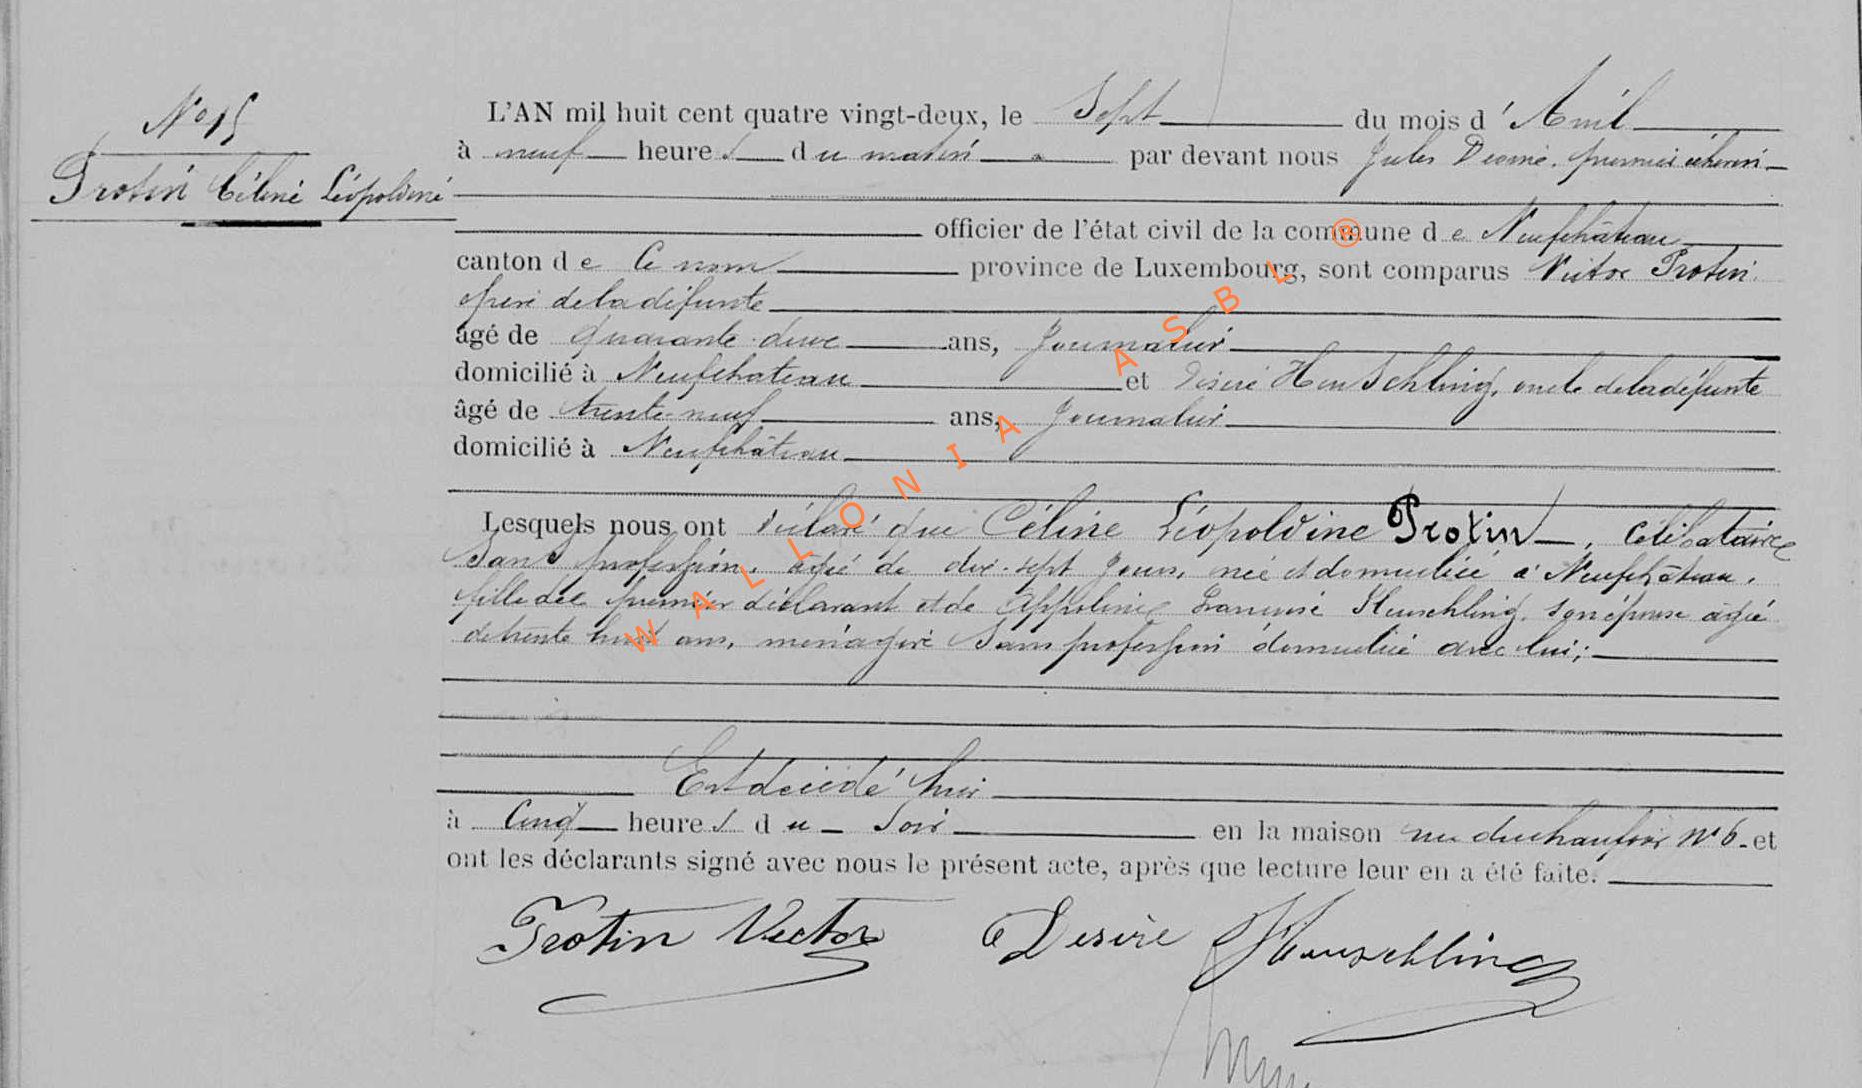 N° 15
Protin Céline Léopoldine
L'AN mil huit cent quatre vingt-deux, le Sept du mois d'Avril
à neuf heures du matin par devant nous Jules premier échevin
officier de l'état civil de la commune de Neufchâteau
canton de Ce nom province de Luxembourg, sont comparus Victor Protin
père de la défunte
âgé de quarante deux ans, Journalier
domicilié à Neufchateau et Désiré Heuschling, oncle de la défunte
âgé de trente-neuf ans, Journalier
domicilié à Neufchâteau
Lesquels nous ont déclaré que Céline Léopoldine Protin, célibataire
Sans profession, agée de dix-sept jours, née et domiciliée à Neufchâteau,
fille du premier déclarant et de Appoline Françoise Heuschling, son épouse agée
de trente huit ans, ménagère Sans profession domiciliée avec lui;
Est décédé hier
à Cinq heures du Soir en la maison rue du chaufour N° 6. et
ont les déclarants signé avec nous le présent acte, après que lecture leur en a été faite.
Protin Victor Desire Heuschling
WALLONIA ASBL ®